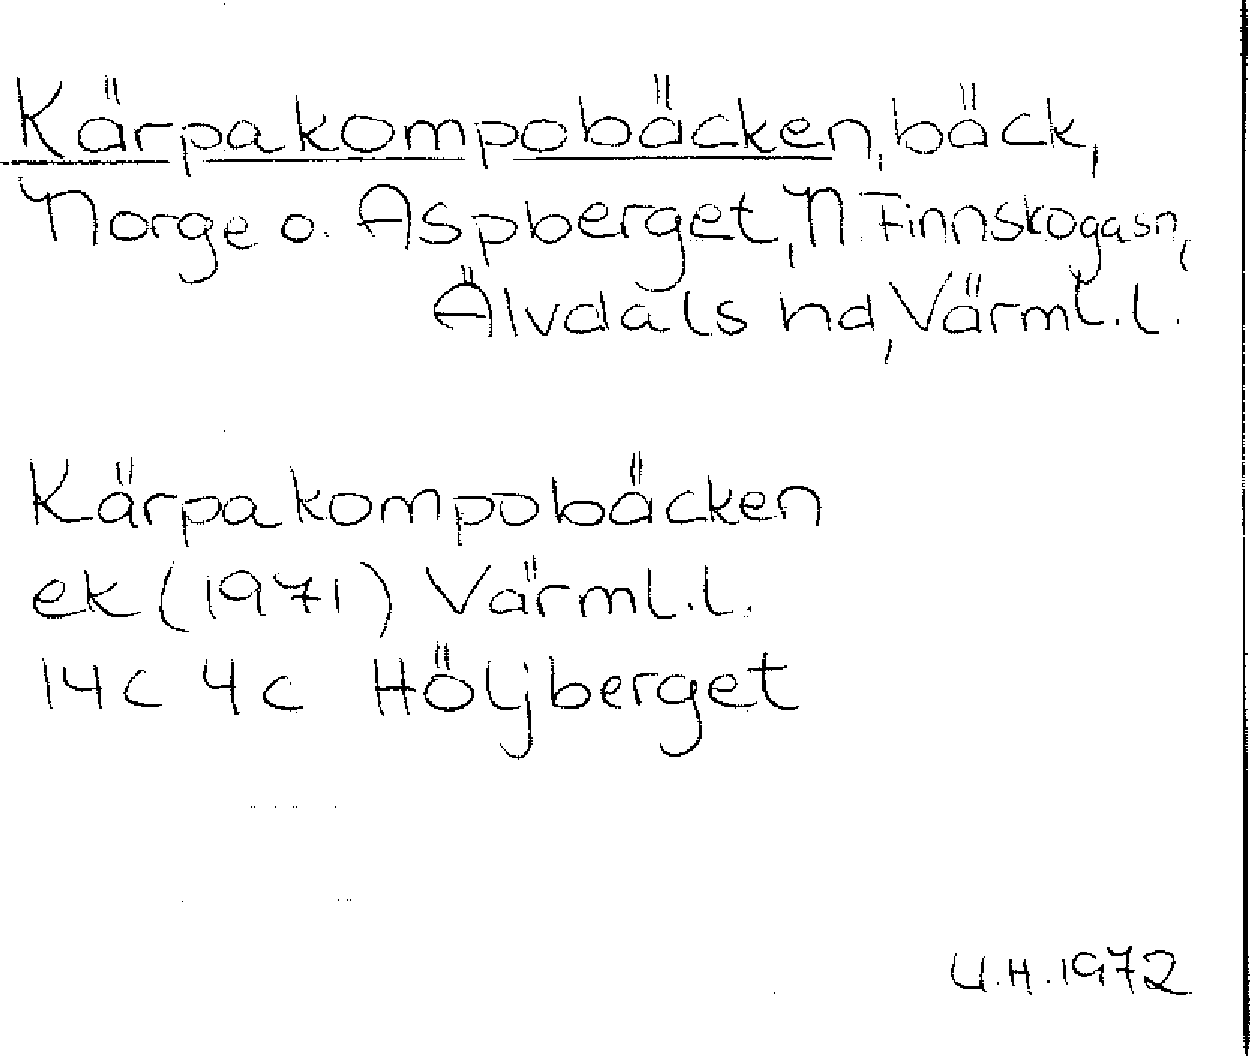 Kärpakompobäcken, bäck,
Norge o. Aspberget, N Finnskogasn,
Älvdals hd, Värml.l.
Kärpakompobäcken
ek (1971) Värml.l.
14c 4c Höljberget
U.H. 1972